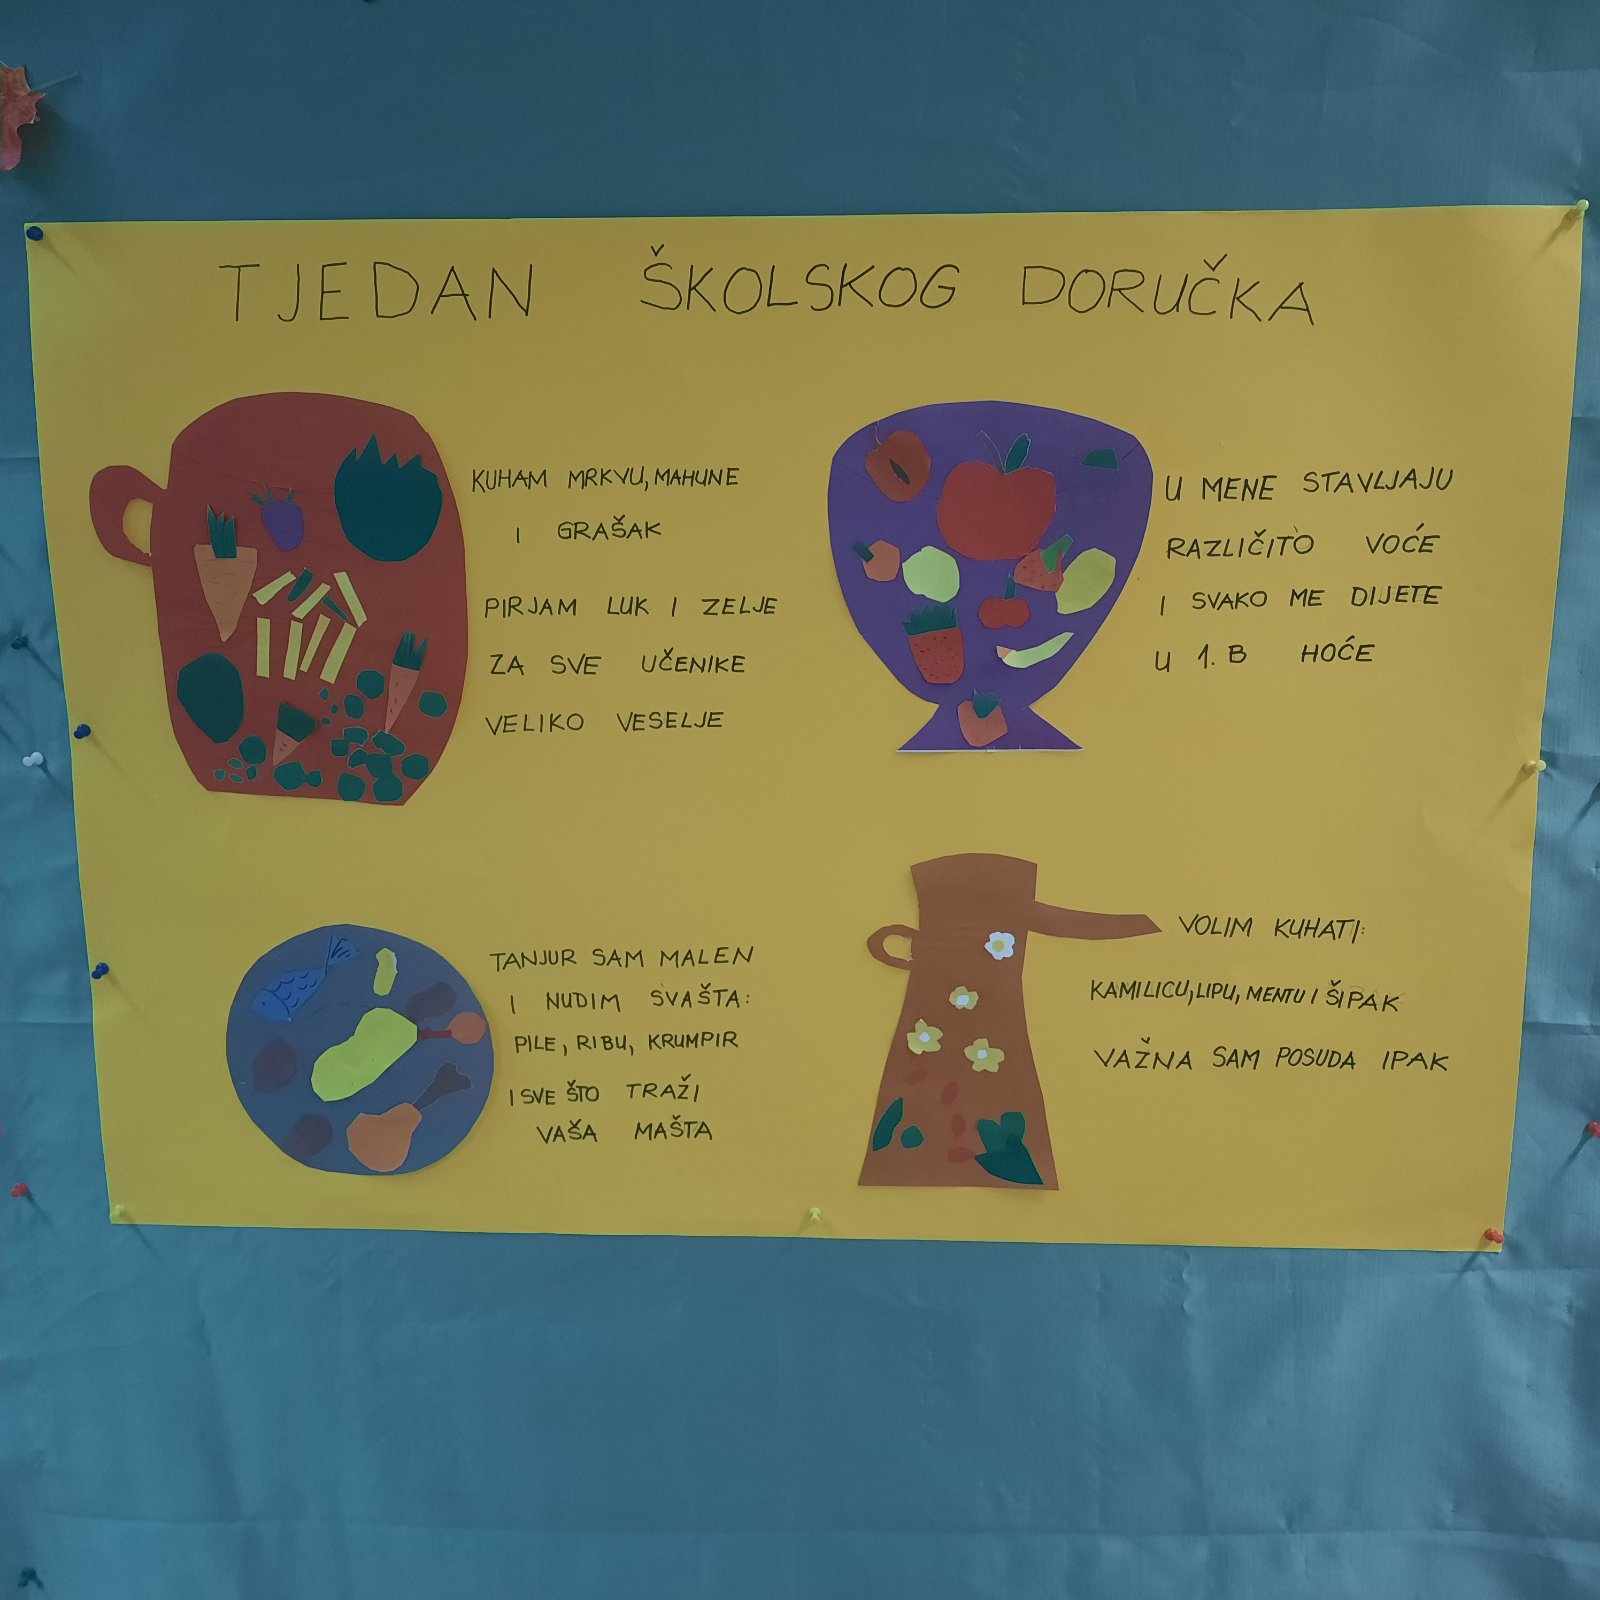 TJEDAN ŠKOLSKOG DORUČKA
KUHAM MRKVU, MAHUNE
I GRAŠAK
PIRJAM LUK I ZELJE
ZA SVE UČENIKE
VELIKO VESELJE
U MENE STAVLJAJU
RAZLIČITO VOĆE
I SVAKO ME DIJETE
U 1. B HOĆE
TANJUR SAM MALEN
I NUDIM SVAŠTA:
PILE, RIBU, KRUMPIR
I SVE ŠTO TRAŽI
VAŠA MAŠTA
VOLIM KUHATI:
KAMILICU, LIPU, MENTU I ŠIPAK
VAŽNA SAM POSUDA IPAK